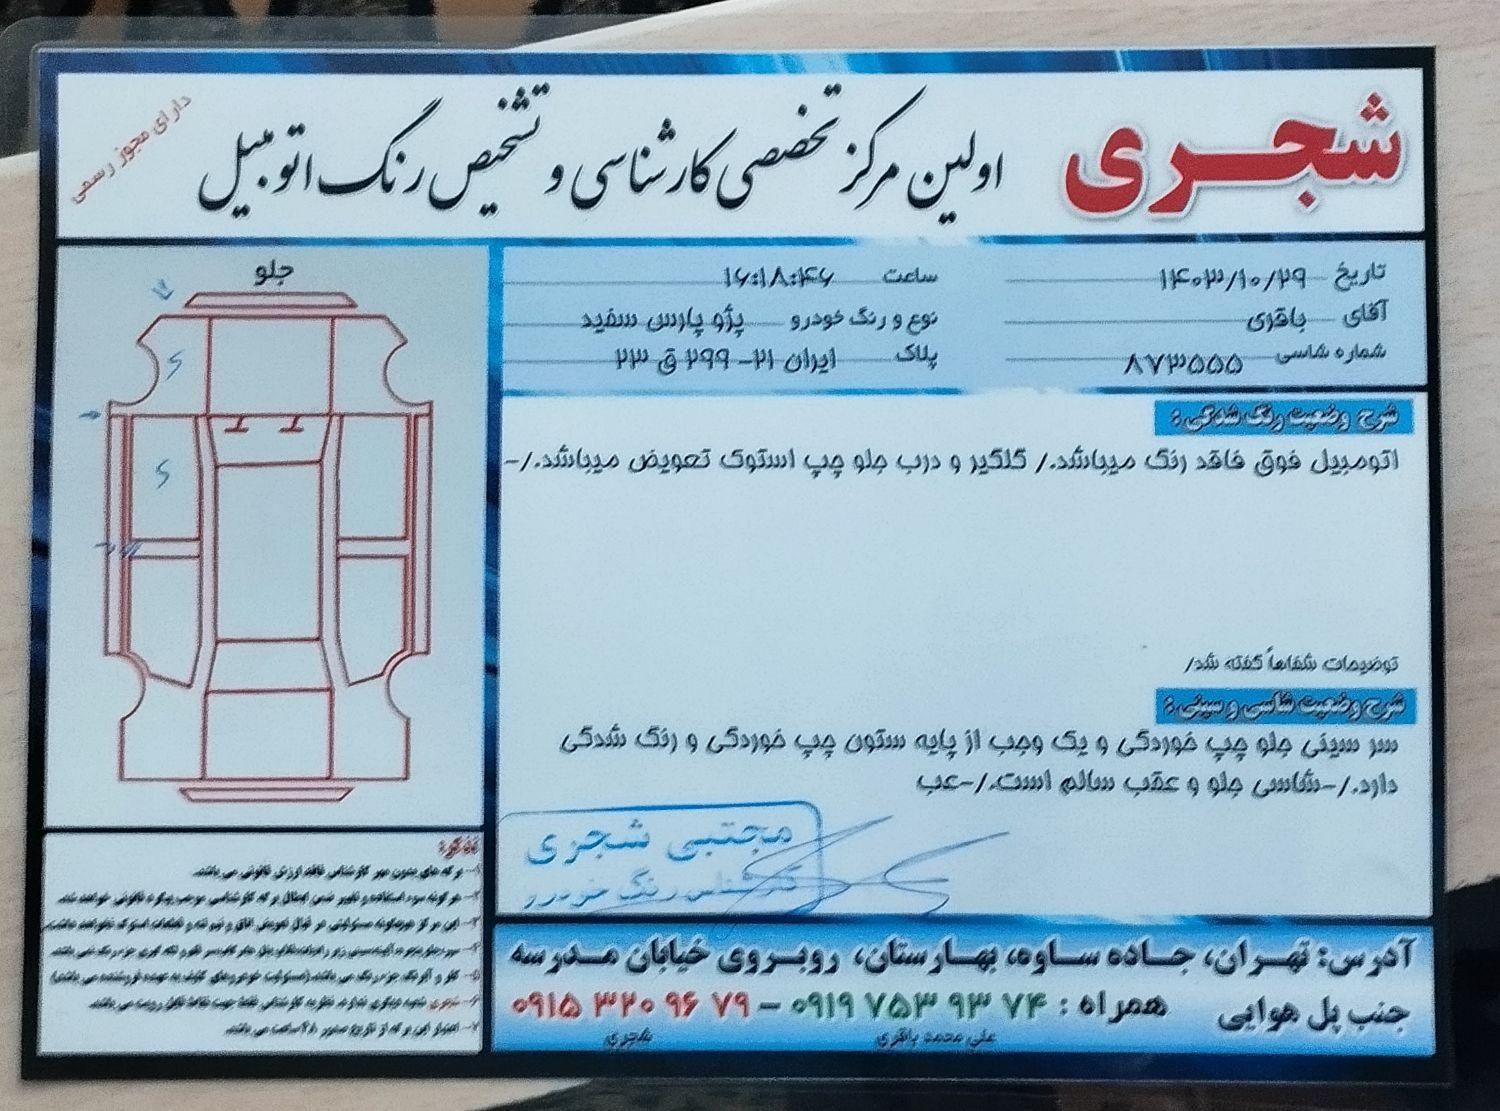 شجری
اولین مرکز تخصصی کارشناسی و تشخیص رنگ اتومبیل
دارای مجوز رسمی
تاریخ ۱۴۰۳/۱۰/۲۹ ساعت ۱۶:۱۸:۴۶
آقای باقری نوع و رنگ خودرو پژو پارس سفید
شماره شاسی ۸۷۳۵۵۵ پلاک ایران ۲۱- ۲۹۹ ق ۲۳
جلو
S
S
شرح وضعیت رنگ شدگی:
اتومبیل فوق فاقد رنگ میباشد./ گلگیر و درب جلو چپ استوک تعویض میباشد./-
توضیحات شفاهاً گفته شد/
شرح وضعیت شاسی و سینی:
سر سینی جلو چپ خوردگی و یک وجب از پایه ستون چپ خوردگی و رنگ شدگی
دارد./-شاسی جلو و عقب سالم است./-عب
مجتبی شجری
کارشناس رنگ خودرو
تذکر:
۱- برگه های بدون مهر کارشناس فاقد ارزش قانونی می باشد.
آدرس: تهران، جاده ساوه، بهارستان، روبروی خیابان مدرسه
جنب پل هوایی همراه : ۰۹۱۹ ۷۵۳ ۹۳ ۷۴ – ۰۹۱۵ ۳۲۰ ۹۶ ۷۹
علی محمد باقری شجری